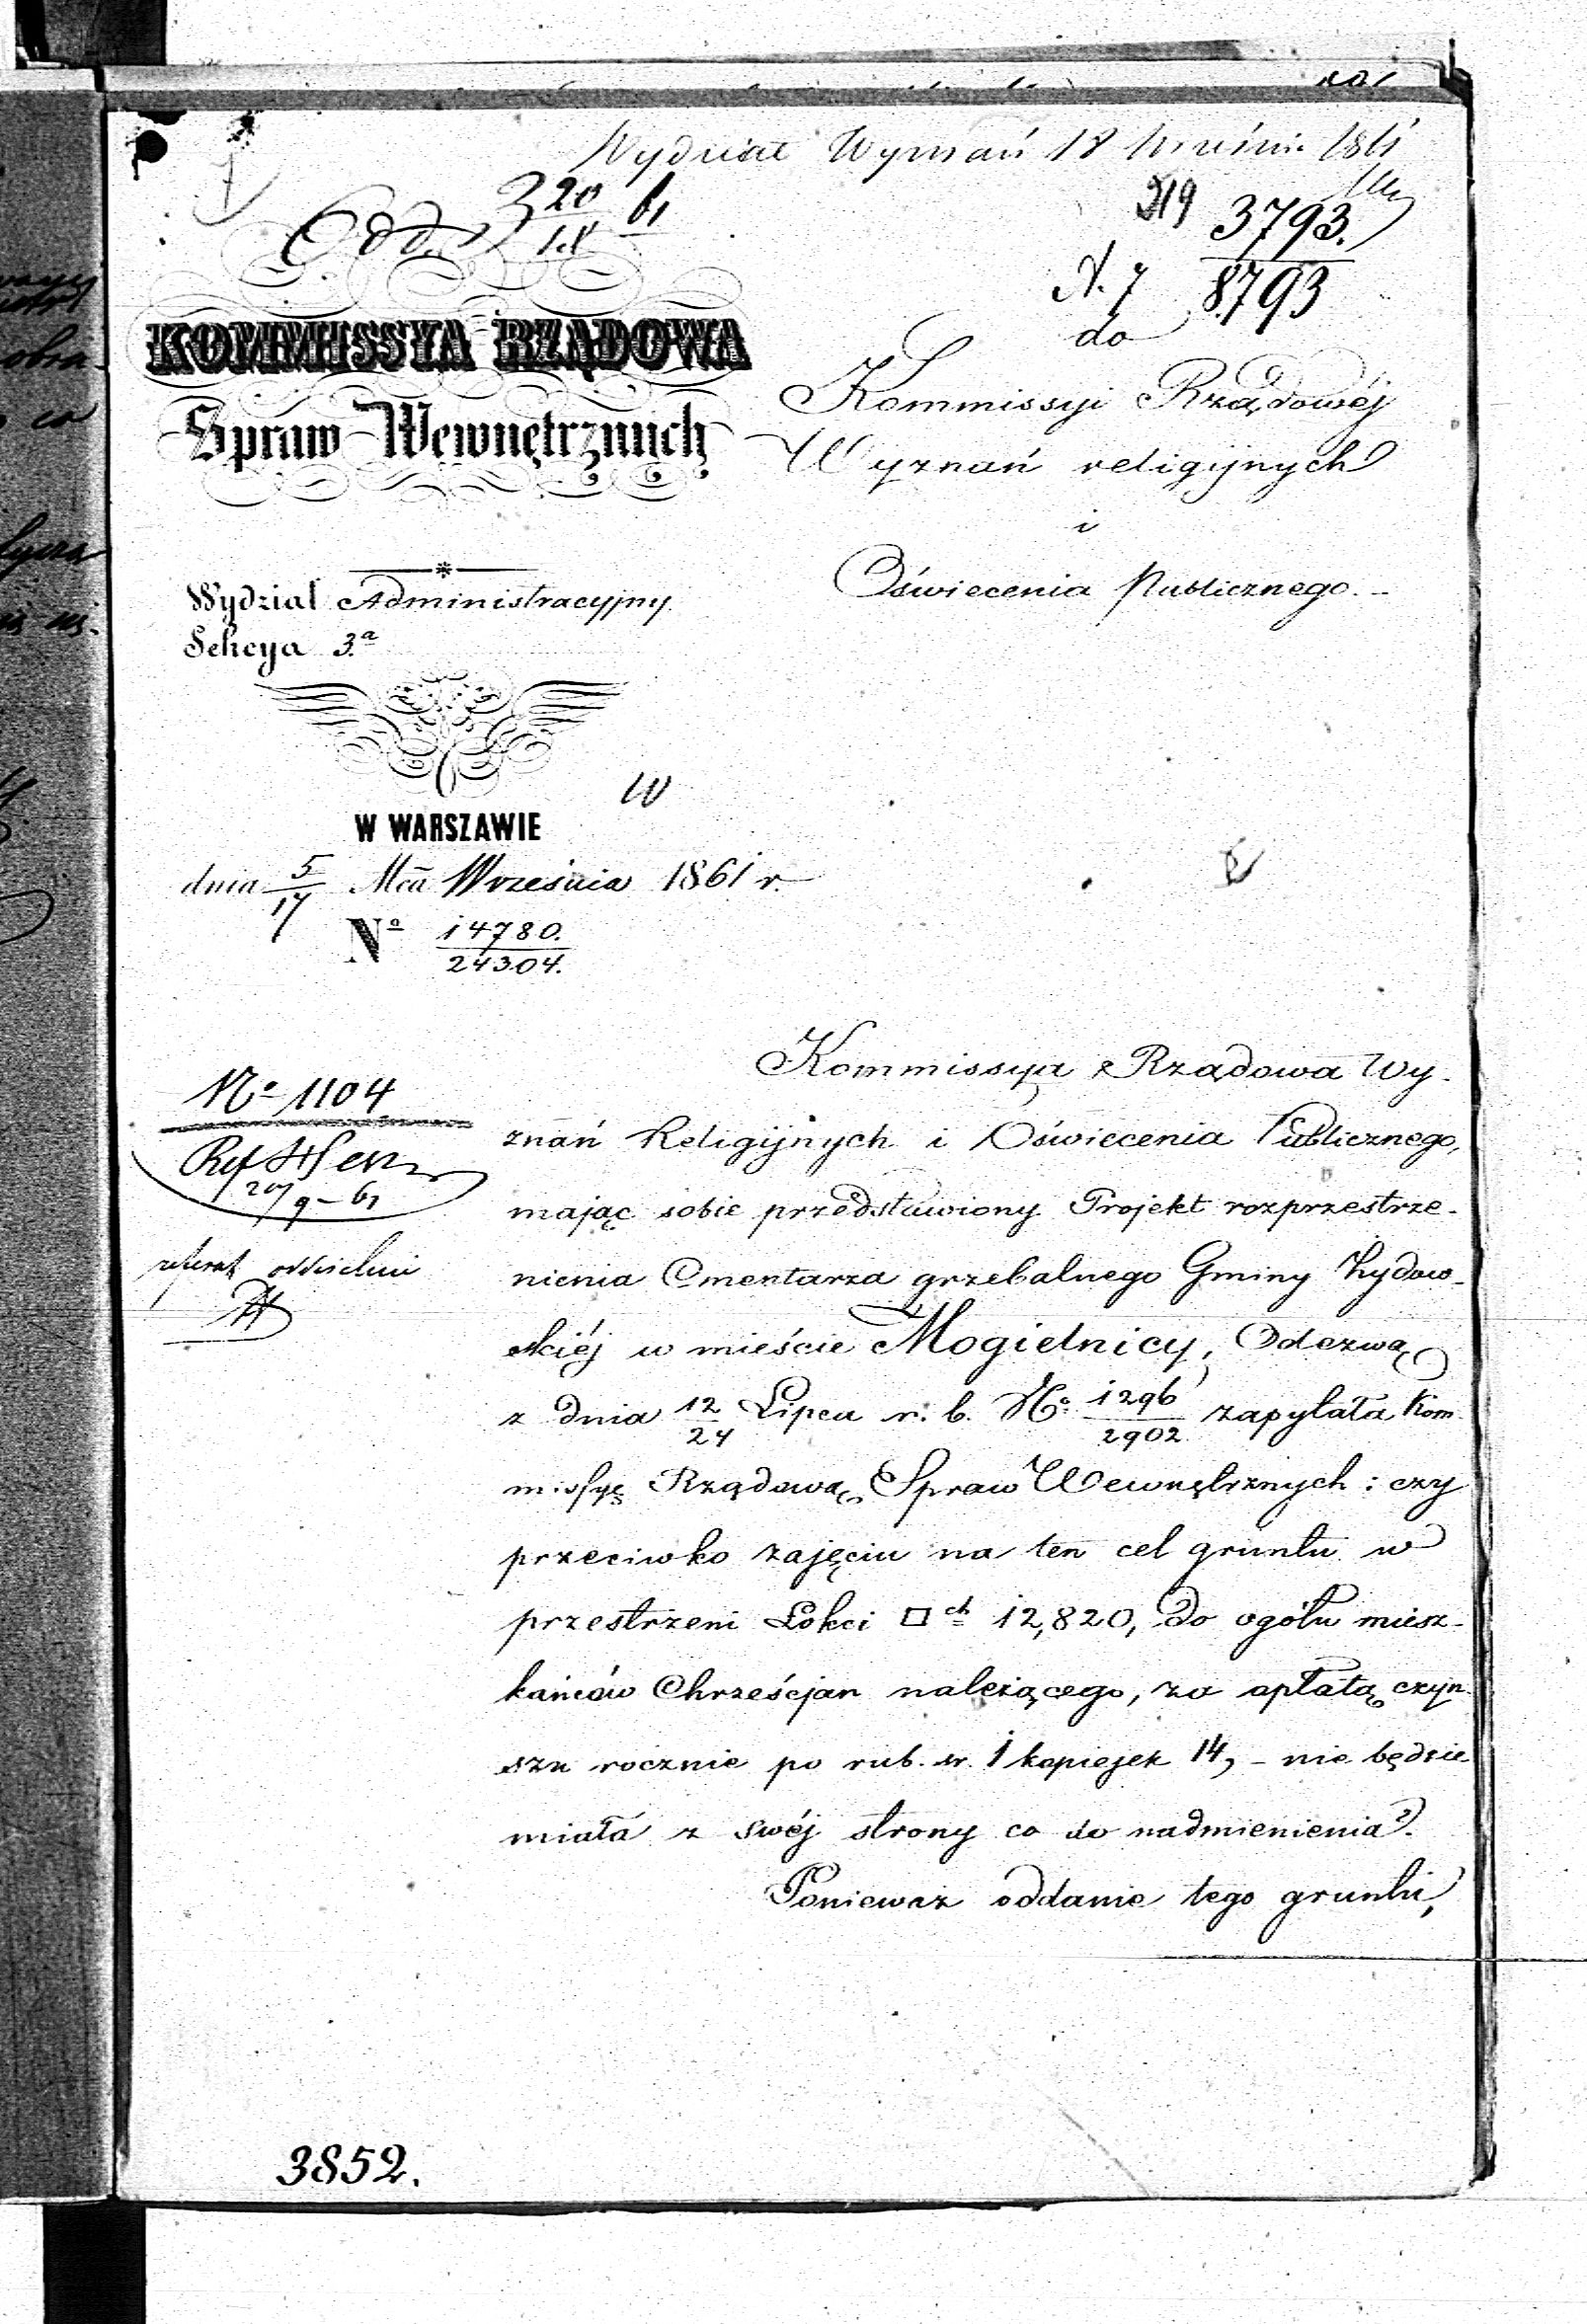 Wydział Wyznań 18 Wrześni 1861
Odd. 3 20/IX 61
319 3793.
N. 7 8793
KOMMISSYA RZĄDOWA
Spraw Wewnętrznych
do
Kommissyi Rządowéj
Wyznań religijnych
i
Oświecenia Publicznego.
Wydział Administracyjny
Sekcya 3.a
W WARSZAWIE
dnia 5/17 Mca Września 1861 r.
No 14780./24304.
No 1104
20/9 – 61
referat
Kommissya Rządowa Wy-
znań Religijnych i Oświecenia Publicznego,
mając sobie przedstawiony Projekt rozprzestrze-
nienia Cmentarza grzebalnego Gminy Żydow-
skiéj w mieście Mogielnicy, Odezwą
z dnia 12/24 Lipca r. b. No 1296/2902 zapytała Kom-
missyę Rządową Spraw Wewnętrznych: czy
przeciwko zajęciu na ten cel gruntu w
przestrzeni Łokci □ch 12,820, do ogółu miesz-
kańców Chrześcjan należącego, za opłatą czyn-
szu rocznie po rub. sr. 1 kopiejek 14, – nie będzie
miała z swéj strony co do nadmienienia?
Ponieważ oddanie tego gruntu,
3852.